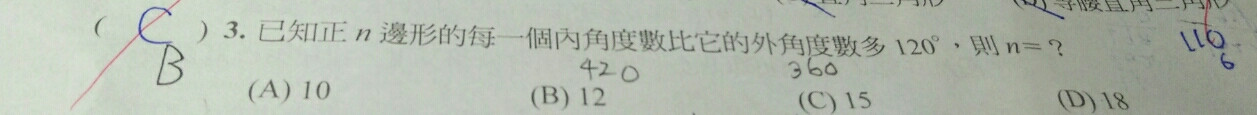 ( C ) 3. 已知正 n 邊形的每一個內角度數比它的外角度數多 120°,則 n=?
B
110
6
420 360
(A) 10 (B) 12 (C) 15 (D) 18